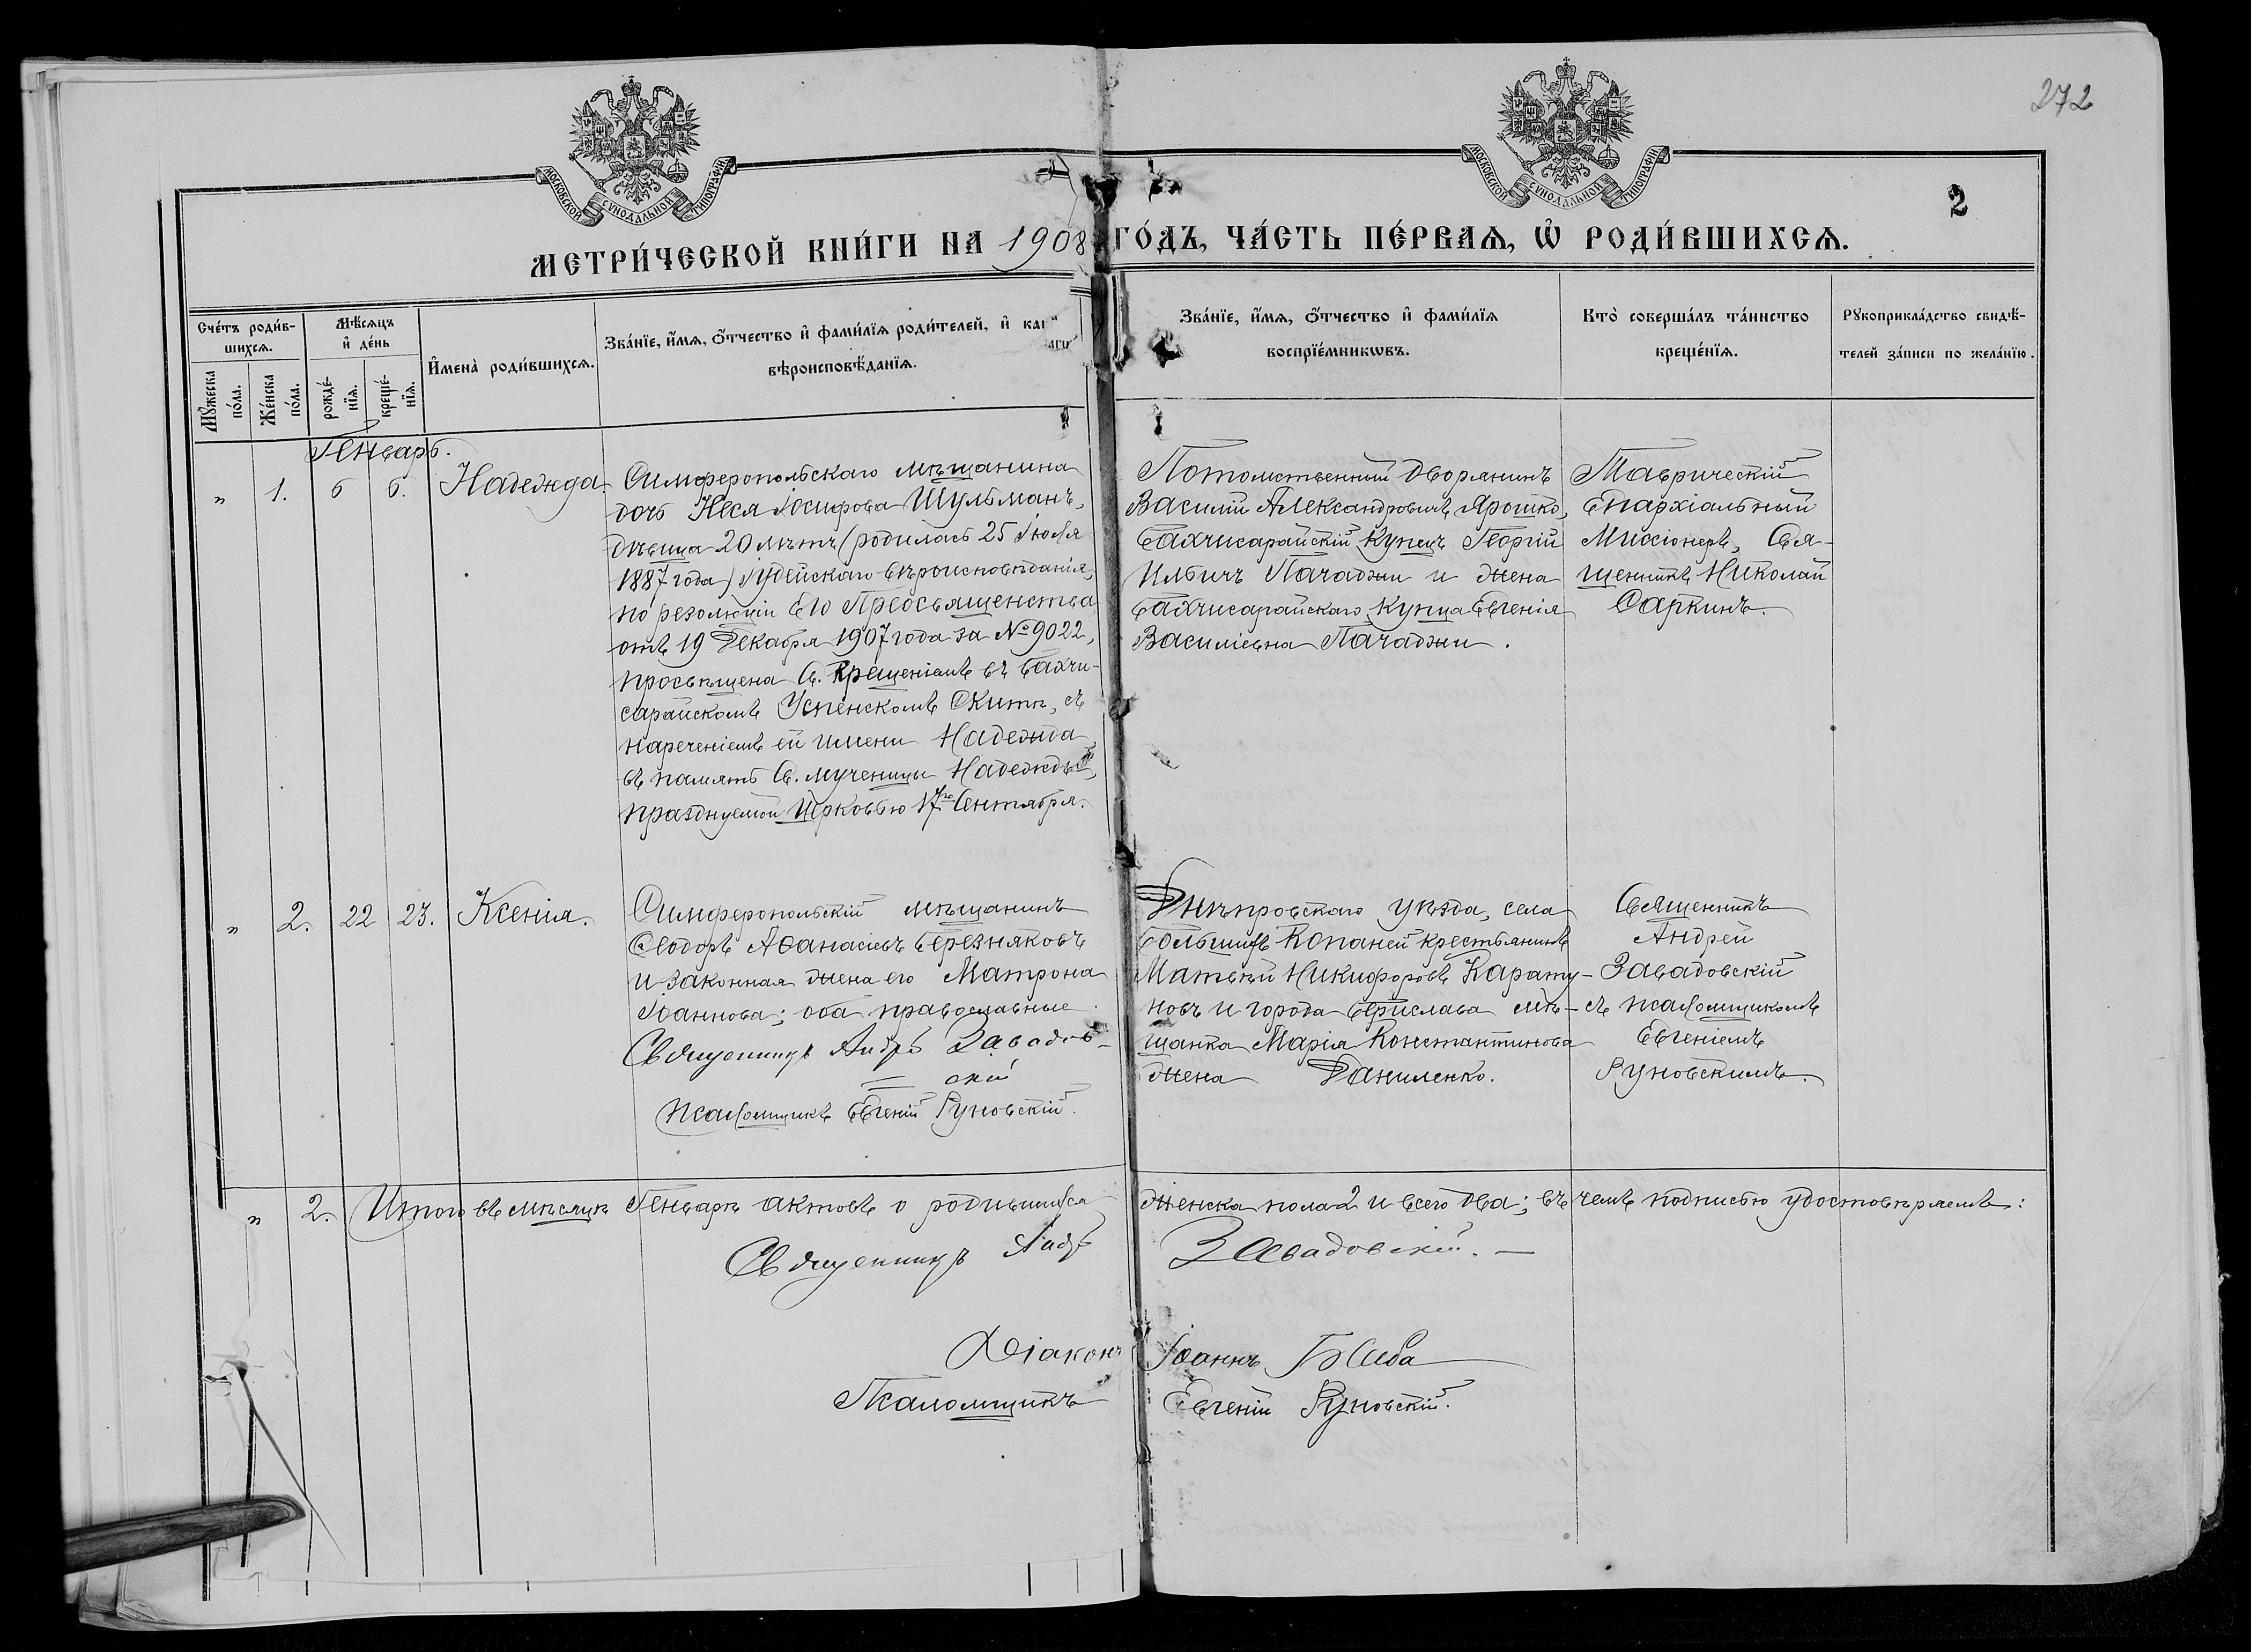 272
МОСКОВСКОЙ СѴНОДАЛЬНОЙ ТИПОГРАФІИ
МОСКОВСКОЙ СѴНОДАЛЬНОЙ ТИПОГРАФІИ
2
МЕТРИ́ЧЕСКОЙ КНИ́ГИ НА 1908 ГО́ДЪ, ЧА́СТЬ ПЕ́РВАѦ, Ѡ҆ РОДИ́ВШИХСѦ.
Сче́тъ роди́в-
шихсѧ.
Мꙋ́жеска по́ла.
Же́нска по́ла.
Мѣ́сѧцъ
и҆ де́нь
рожде́-
нїѧ.
креще́-
нїѧ.
И҆мена̀ роди́вшихсѧ.
Зва́нїе, и҆́мѧ, ѻ҆́тчество и҆ фами́лїѧ роди́телей, и҆ как
вѣроисповѣ́данїѧ.
Зва́нїе, и҆́мѧ, ѻ҆́тчество и҆ фами́лїѧ
воспрїе́мникѡвъ.
Кто̀ соверша́лъ та́инство
креще́нїѧ.
Рꙋкоприкла́дство свидѣ́-
телей за́писи по жела́нїю.
Генварь.
" 1. 6 6. Надежда.
Симферопольскаго мѣщанина
дочь Неся Іосифова Шульманъ,
дѣвица 20 лѣтъ (родилась 25 Іюля
1887 года) Іудейскаго вѣроисповѣданія,
по резолюціи Его Преосвященства
отъ 19 Декабря 1907 года за № 9022,
просвѣщена Св. Крещеніемъ въ Бахчи-
сарайскомъ Успенскомъ Скитѣ, съ
нареченіемъ ей имени Надежда
въ память Св. мученицы Надежды,
празднуемой Церковью 17го Сентября.
Потомственный дворянинъ
Василій Александровичъ Ярошко,
Бахчисарайскій купецъ Георгій
Ильичъ Пачаджи и жена
Бахчисарайскаго купца Евгенія
Василіевна Пачаджи.
Таврическій
Епархіальный
Миссіонеръ, Свя-
щенникъ Николай
Саркинъ.
" 2. 22 23. Ксенія.
Симферопольскій мѣщанинъ
Ѳеодоръ Аѳанасіевъ Березняковъ
и законная жена его Матрона
Іоаннова; оба православные.
Священникъ Андр Завадов-
скій
Псаломщикъ Евгеній Руновскій.
Днѣпровскаго уѣзда, села
Большихъ Копаней крестьянинъ
Матвѣй Никифоровъ Карату-
новъ и города Берислава мѣ-
щанка Марія Константинова
жена Даниленко.
Священникъ
Андрей
Завадовскій
съ псаломщикомъ
Евгеніемъ
Руновскимъ.
" 2. Итого въ мѣсяцѣ Генварѣ актовъ о родившихся женска пола 2 и всего два; въ чемъ подписью удостовѣряемъ:
Священникъ Андр Завадовскій.
Діаконъ Іоаннъ
Псаломщикъ Евгеній Руновскій.